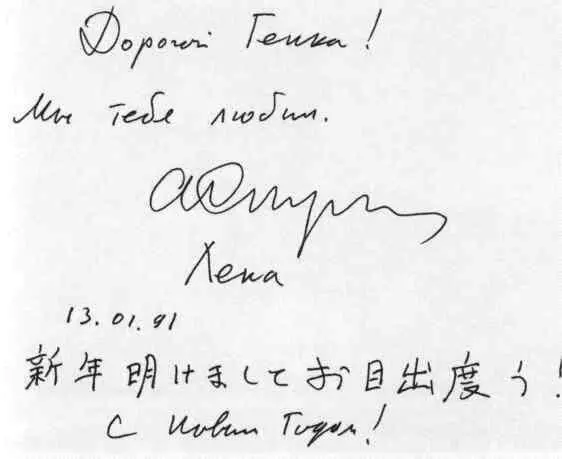 Дорогой Генка!
Мы тебе любим.
Лена
13.01.91
新年明けましてお目出度う!
С Новым Годом!